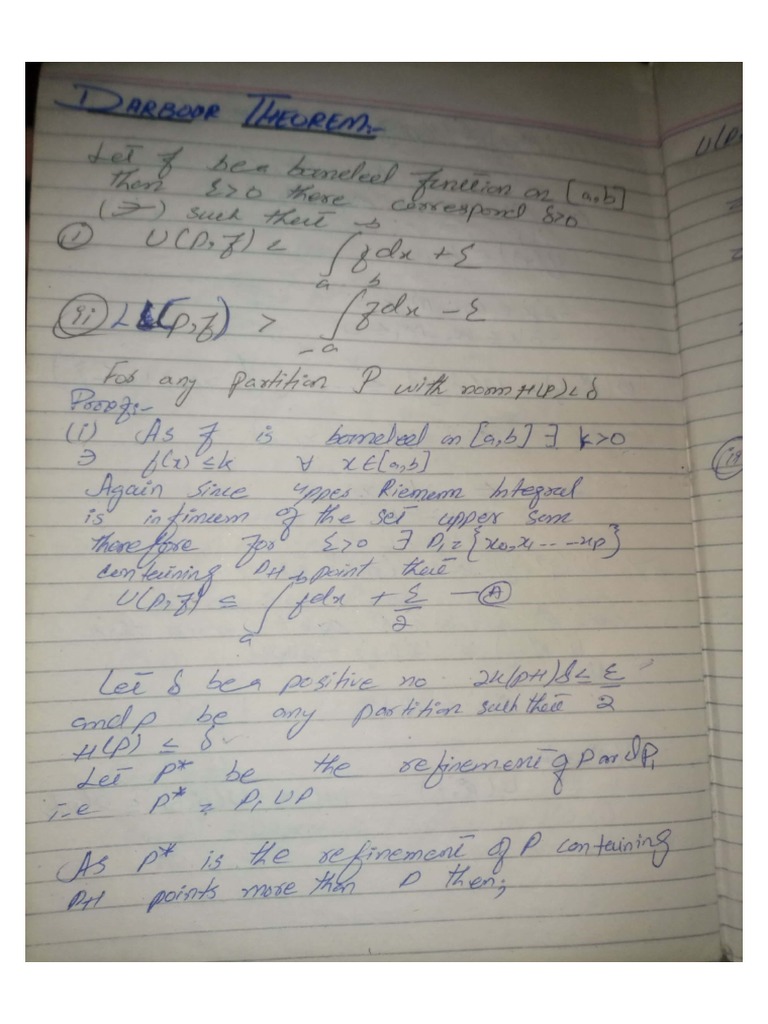 DARBOUR THEOREM:-
Let f be a bounded function on [a,b]
then ε>0 there correspond δ>0
(∋) such that
(i) U(P,f) < ∫_a^-b f dx + ε
(ii) L(P,f) > ∫_-a^b f dx - ε
For any partition P with norm H(P)<δ
Proof:-
(i) As f is bounded on [a,b] ∃ k>0
∋ f(x) ≤ k ∀ x ∈ [a,b]
Again since upper Riemann Integral
is infimum of the set upper sum
therefore for ε>0 ∃ P₁ = {x₀, x₁ - - - - xp}
containing P+1 point that
U(P,f) = ∫_a^-b f dx + ε/2 — (A)
Let δ be a positive no 2k(p+1)δ ≤ ε/2
and p be any partition such that
H(P) ≤ δ
Let P* be the refinement of P and P₁
i-e P* = P₁ ∪ P
As P* is the refinement of P containing
P+1 points more than P then;
U(P
(ii)